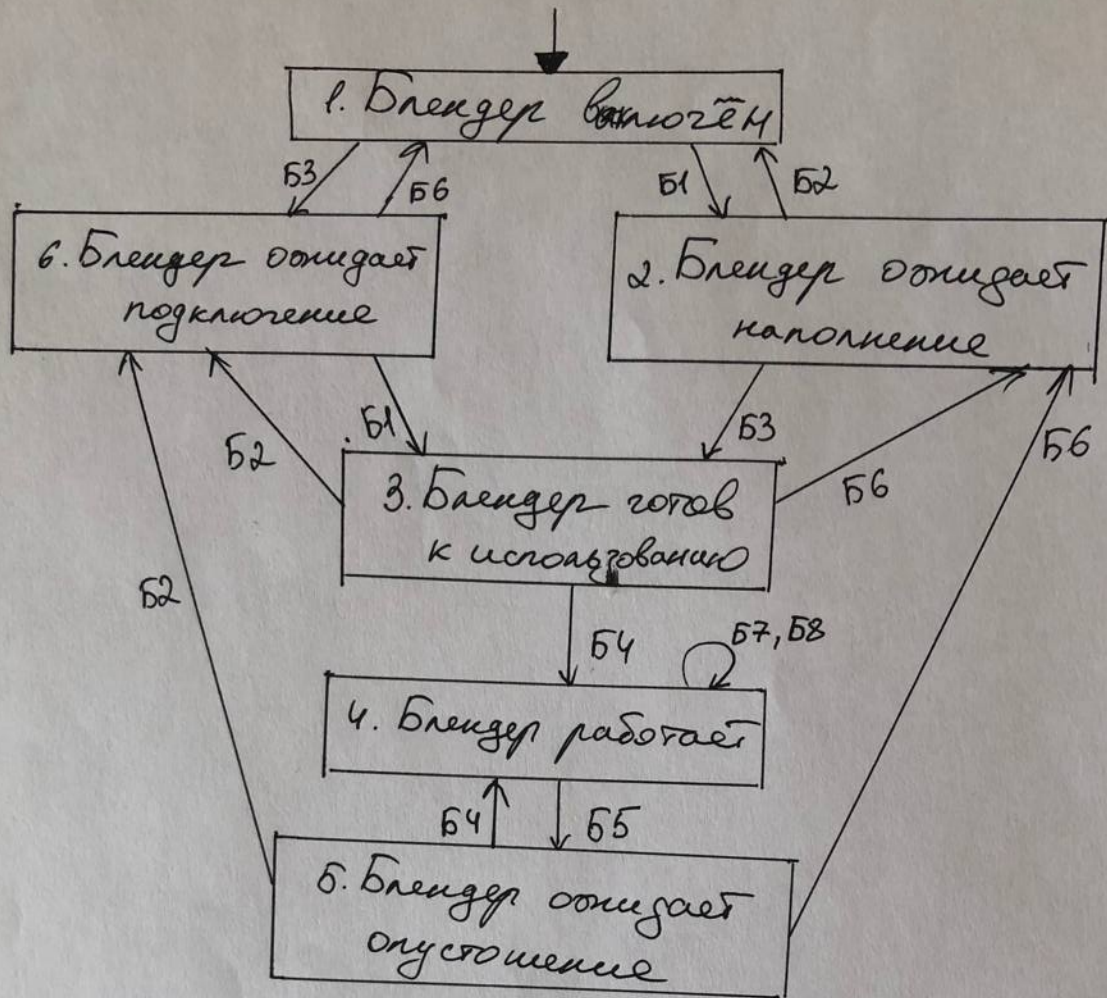 1. Блендер
Б3 Б6 Б1 Б2
6. Блендер ожидает
подключение
2. Блендер ожидает
наполнение
Б1 Б3
Б2 Б6 Б6
3. Блендер готов
к использованию
Б2
Б4 Б7, Б8
4. Блендер работает
Б4 Б5
5. Блендер ожидает
опустошение